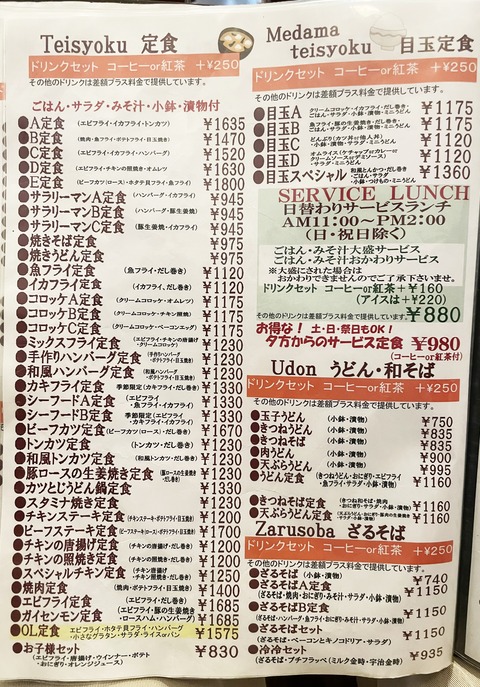 Teisyoku 定食
ドリンクセット コーヒーor紅茶 +¥250
その他のドリンクは差額プラス料金で提供しています。
ごはん・サラダ・みそ汁・小鉢・漬物付
●A定食 (エビフライ・イカフライ・トンカツ) ¥1635
●B定食 (焼肉・魚フライ・ポテトフライ・目玉焼) ¥1470
●C定食 (エビフライ・イカフライ・ハンバーグ) ¥1520
●D定食 (エビフライ・チキンの照焼き・オムレツ) ¥1630
●E定食 (ビーフカツ(ロース)・ホタテ貝フライ・魚フライ) ¥1800
●サラリーマンA定食 (ハンバーグ・イカフライ) ¥945
●サラリーマンB定食 (ハンバーグ・豚生姜焼) ¥945
●サラリーマンC定食 (豚生姜焼・イカフライ) ¥945
●焼きそば定食 ¥975
●焼きうどん定食 ¥975
●魚フライ定食 (魚フライ・だし巻き) ¥1120
●イカフライ定食 (イカフライ、だし巻き) ¥1120
●コロッケA定食 (クリームコロッケ・オムレツ) ¥1175
●コロッケB定食 (クリームコロッケ・チキン照焼) ¥1175
●コロッケC定食 (クリームコロッケ・ベーコンエッグ) ¥1175
●ミックスフライ定食 (エビフライ・チキンの唐揚・クリームコロッケ) ¥1230
●手作りハンバーグ定食 (手作りハンバーグ・ポテトフライ・目玉焼) ¥1230
●和風ハンバーグ定食 (和風ハンバーグ・ポテトフライ・目玉焼) ¥1230
●カキフライ定食 季節限定(カキフライ・だし巻き) ¥1330
●シーフードA定食 (エビフライ・魚フライ・イカフライ) ¥1330
●シーフードB定食 季節限定(エビフライ・カキフライ・イカフライ) ¥1330
●ビーフカツ定食 (ビーフカツ(ロース)・だし巻き) ¥1670
●トンカツ定食 (トンカツ・だし巻き) ¥1230
●和風トンカツ定食 (和風トンカツ・だし巻き) ¥1230
●豚ロースの生姜焼き定食 (豚ロースの生姜焼き・だし巻き) ¥1230
●カツとじうどん鍋定食 ¥1230
●スタミナ焼き定食 ¥1330
●チキンステーキ定食 (チキンステーキ・ポテトフライ・目玉焼) ¥1200
●ビーフステーキ定食 (ビーフステーキ(ロース)・ポテトフライ・目玉焼) ¥1700
●チキンの唐揚げ定食 (チキンの唐揚げ・だし巻き) ¥1200
●チキンの照焼き定食 (チキンの照焼き・だし巻き) ¥1200
●スペシャルチキン定食 (チキン唐揚げ・チキン照焼き・だし巻き) ¥1250
●焼肉定食 (焼肉・ポテトフライ・目玉焼き) ¥1400
●エビフライ定食 (エビフライ・だし巻き) ¥1685
●ガイセンモン定食 (エビフライ・豚の生姜焼き・ロースハム・ハンバーグ) ¥1685
●OL定食 エビフライ・ホタテ貝フライ・ハンバーグ・小さなグラタン・サラダ・ライスorパン ¥1575
●お子様セット ¥830
(エビフライ・唐揚げ・ウインナー・ポテト・おにぎり・オレンジジュース)
Medama teisyoku 目玉定食
ドリンクセット コーヒーor紅茶 +¥250
その他のドリンクは差額プラス料金で提供しています。
●目玉A クリームコロッケ・イカフライ・だし巻き・ごはん・サラダ・小鉢・漬物・ミニうどん ¥1175
●目玉B 魚フライ・豚の生姜焼き・だし巻き・ごはん・サラダ・小鉢・漬物・ミニうどん ¥1175
●目玉C どんぶり(カツ丼or他人丼)・小鉢・漬物・サラダ・ミニうどん ¥1120
●目玉D オムライス(ケチャップorカレーorクリームソースorデミソース)・サラダ・ミニうどん ¥1120
●目玉スペシャル 和風とんかつ・だし巻き・ごはん・サラダ・小鉢・つけもの・ミニうどん ¥1360
SERVICE LUNCH
日替わりサービスランチ
AM11:00~PM2:00
(日・祝日除く)
ごはん・みそ汁大盛サービス
ごはん・みそ汁おかわりサービス
※大盛にされた場合は
おかわりできませんのでご了承下さいませ。
ドリンクセット コーヒーor紅茶+¥160
(アイスは+¥220)
その他のドリンクは差額プラス料金で提供しています。 ¥880
お得な! 土・日・祭日もOK!
夕方からのサービス定食 ¥980
(コーヒーor紅茶付)
Udon うどん・和そば
ドリンクセット コーヒーor紅茶 +¥250
その他のドリンクは差額プラス料金で提供しています。
●玉子うどん (小鉢・漬物) ¥750
●きつねうどん (小鉢・漬物) ¥835
●きつねそば (小鉢・漬物) ¥835
●肉うどん (小鉢・漬物) ¥900
●天ぷらうどん (小鉢・漬物) ¥995
●うどん定食 (きつねうどん・おにぎり・エビフライ・魚フライ・サラダ・小鉢・漬物) ¥1160
●きつねそば定食 (きつね和そば・焼肉・おにぎり・サラダ・小鉢・漬物) ¥1160
●天ぷらうどん定食 ¥1160
Zarusoba ざるそば
ドリンクセット コーヒーor紅茶 +¥250
その他のドリンクは差額プラス料金で提供しています。
●ざるそば (小鉢・漬物) ¥740
●ざるそばA定食 ¥1150
(ざるそば・焼肉・おにぎり・ミニオムレツ・サラダ・小鉢・漬物)
●ざるそばB定食 ¥1150
(ざるそば・エビフライ・魚フライ・おにぎり・サラダ・小鉢・漬物)
●ざるそばセット ¥1150
(ざるそば・ベーコンとキノコドリア・サラダ)
●冷冷セット ¥935
(ざるそば・プチフラッペ(ミルク金時・宇治金時)